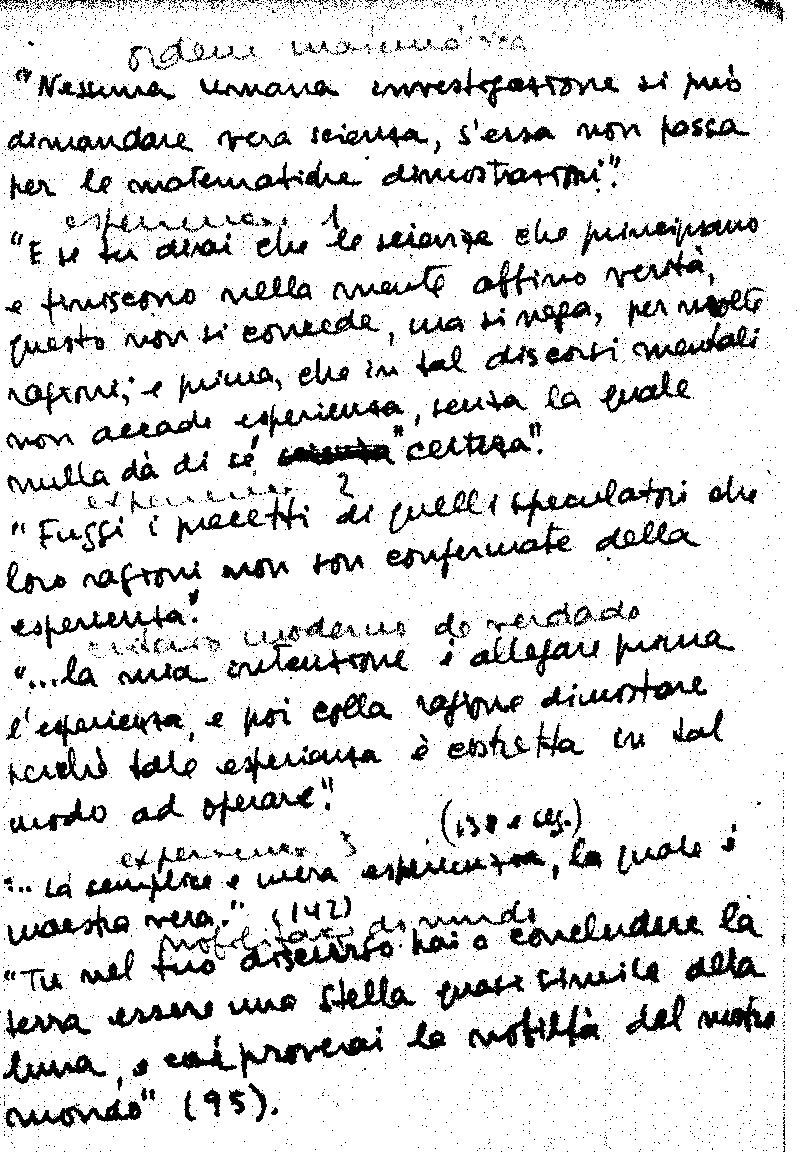 ordem matemática
"Nessuna umana investigazione si può
dimandare vera scienza, s'essa non passa
per le matematiche dimostrazioni".
esperienza 1
"E se tu dirai che le scienze che principiano
e finiscono nella mente abbino verità,
questo non si concede, ma si nega, per molte
ragioni; e prima, che in tal discorsi mentali
non accade esperienza, senza la quale
nulla dà di sé "certeza".
2
"Fuggi i precetti di quelli speculatori che
loro ragioni non son confermate della
esperienza".
criterio moderno de verdade
"...la mia intenzione é allegare prima
l'esperienza, e poi colla ragione dimostare
perché tale esperienza è costretta in tal
modo ad operare".
(138 e seg.)
3
"... La semplice e mera esperienza, la quale é
maestra vera." (142)
mobilidade do mundo
"Tu nel tuo discurso hai a concludere la
terra essere una stella quase simile alla
luna, e così proverai la nobiltà del nostro
mondo" (95).